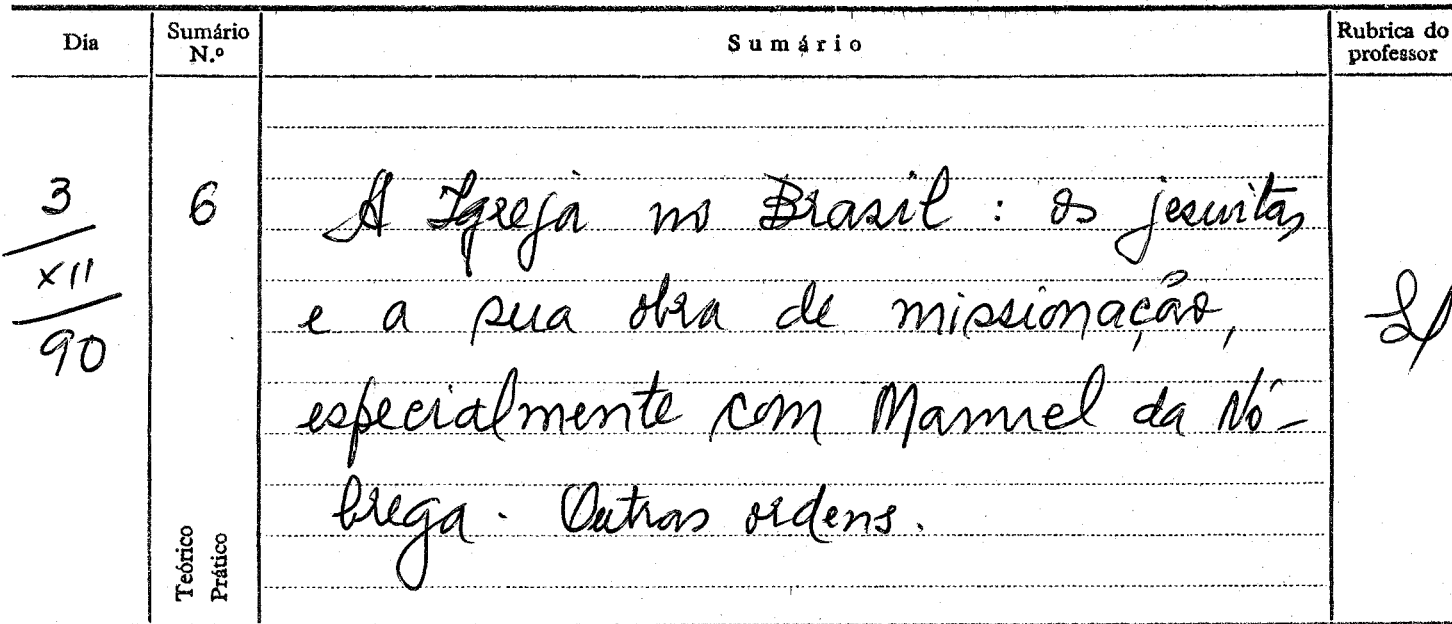 Dia
Sumário N.º
Sumário
Rubrica do professor
3
XII
90
6
A Igreja no Brasil : os jesuitas,
e a sua obra de missionação,
especialmente com Manuel da Nó-
brega. Outras ordens.
Teórico
Prático